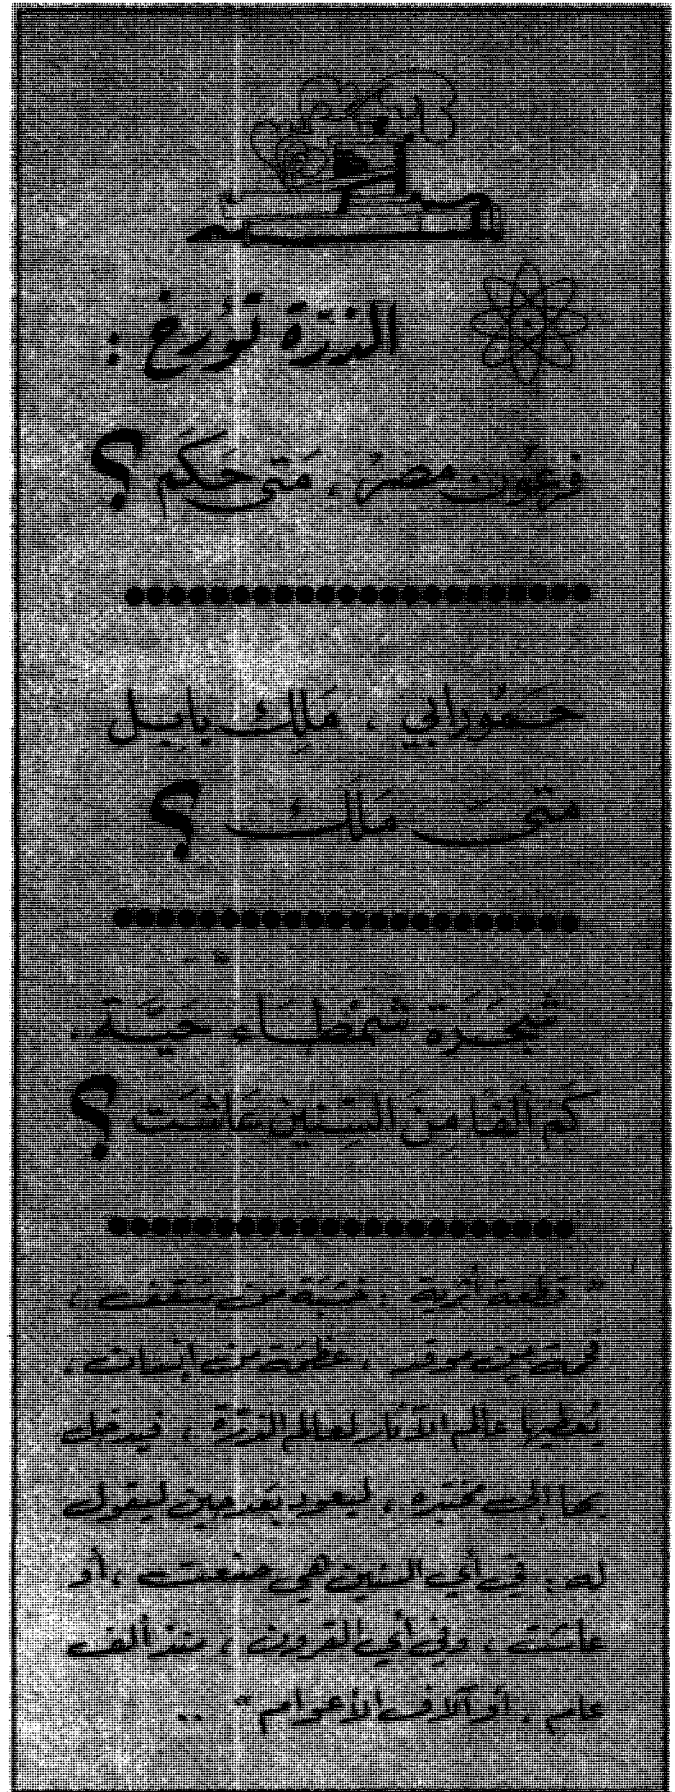 الذرّة تؤرخ :
فرعون مصر ، متى حكم ؟
حمورابي ، ملك بابل
متى ملك ؟
شجرة شمطاء حيّة ،
كم ألفا من السنين عاشت ؟
" قطعة أثرية ، خشبة من سقف ،
فحمة من موقد ، عظمة من انسان ،
يعطيها عالم الآثار لعالم الذرّة ، فيدخل
بها الى مختبره ، ليعود بعد حين ليقول
له : في أي السنين هي صنعت ، أو
عاشت ، وفي أي القرون ، منذ ألف
عام ، أو آلاف الأعوام " ..